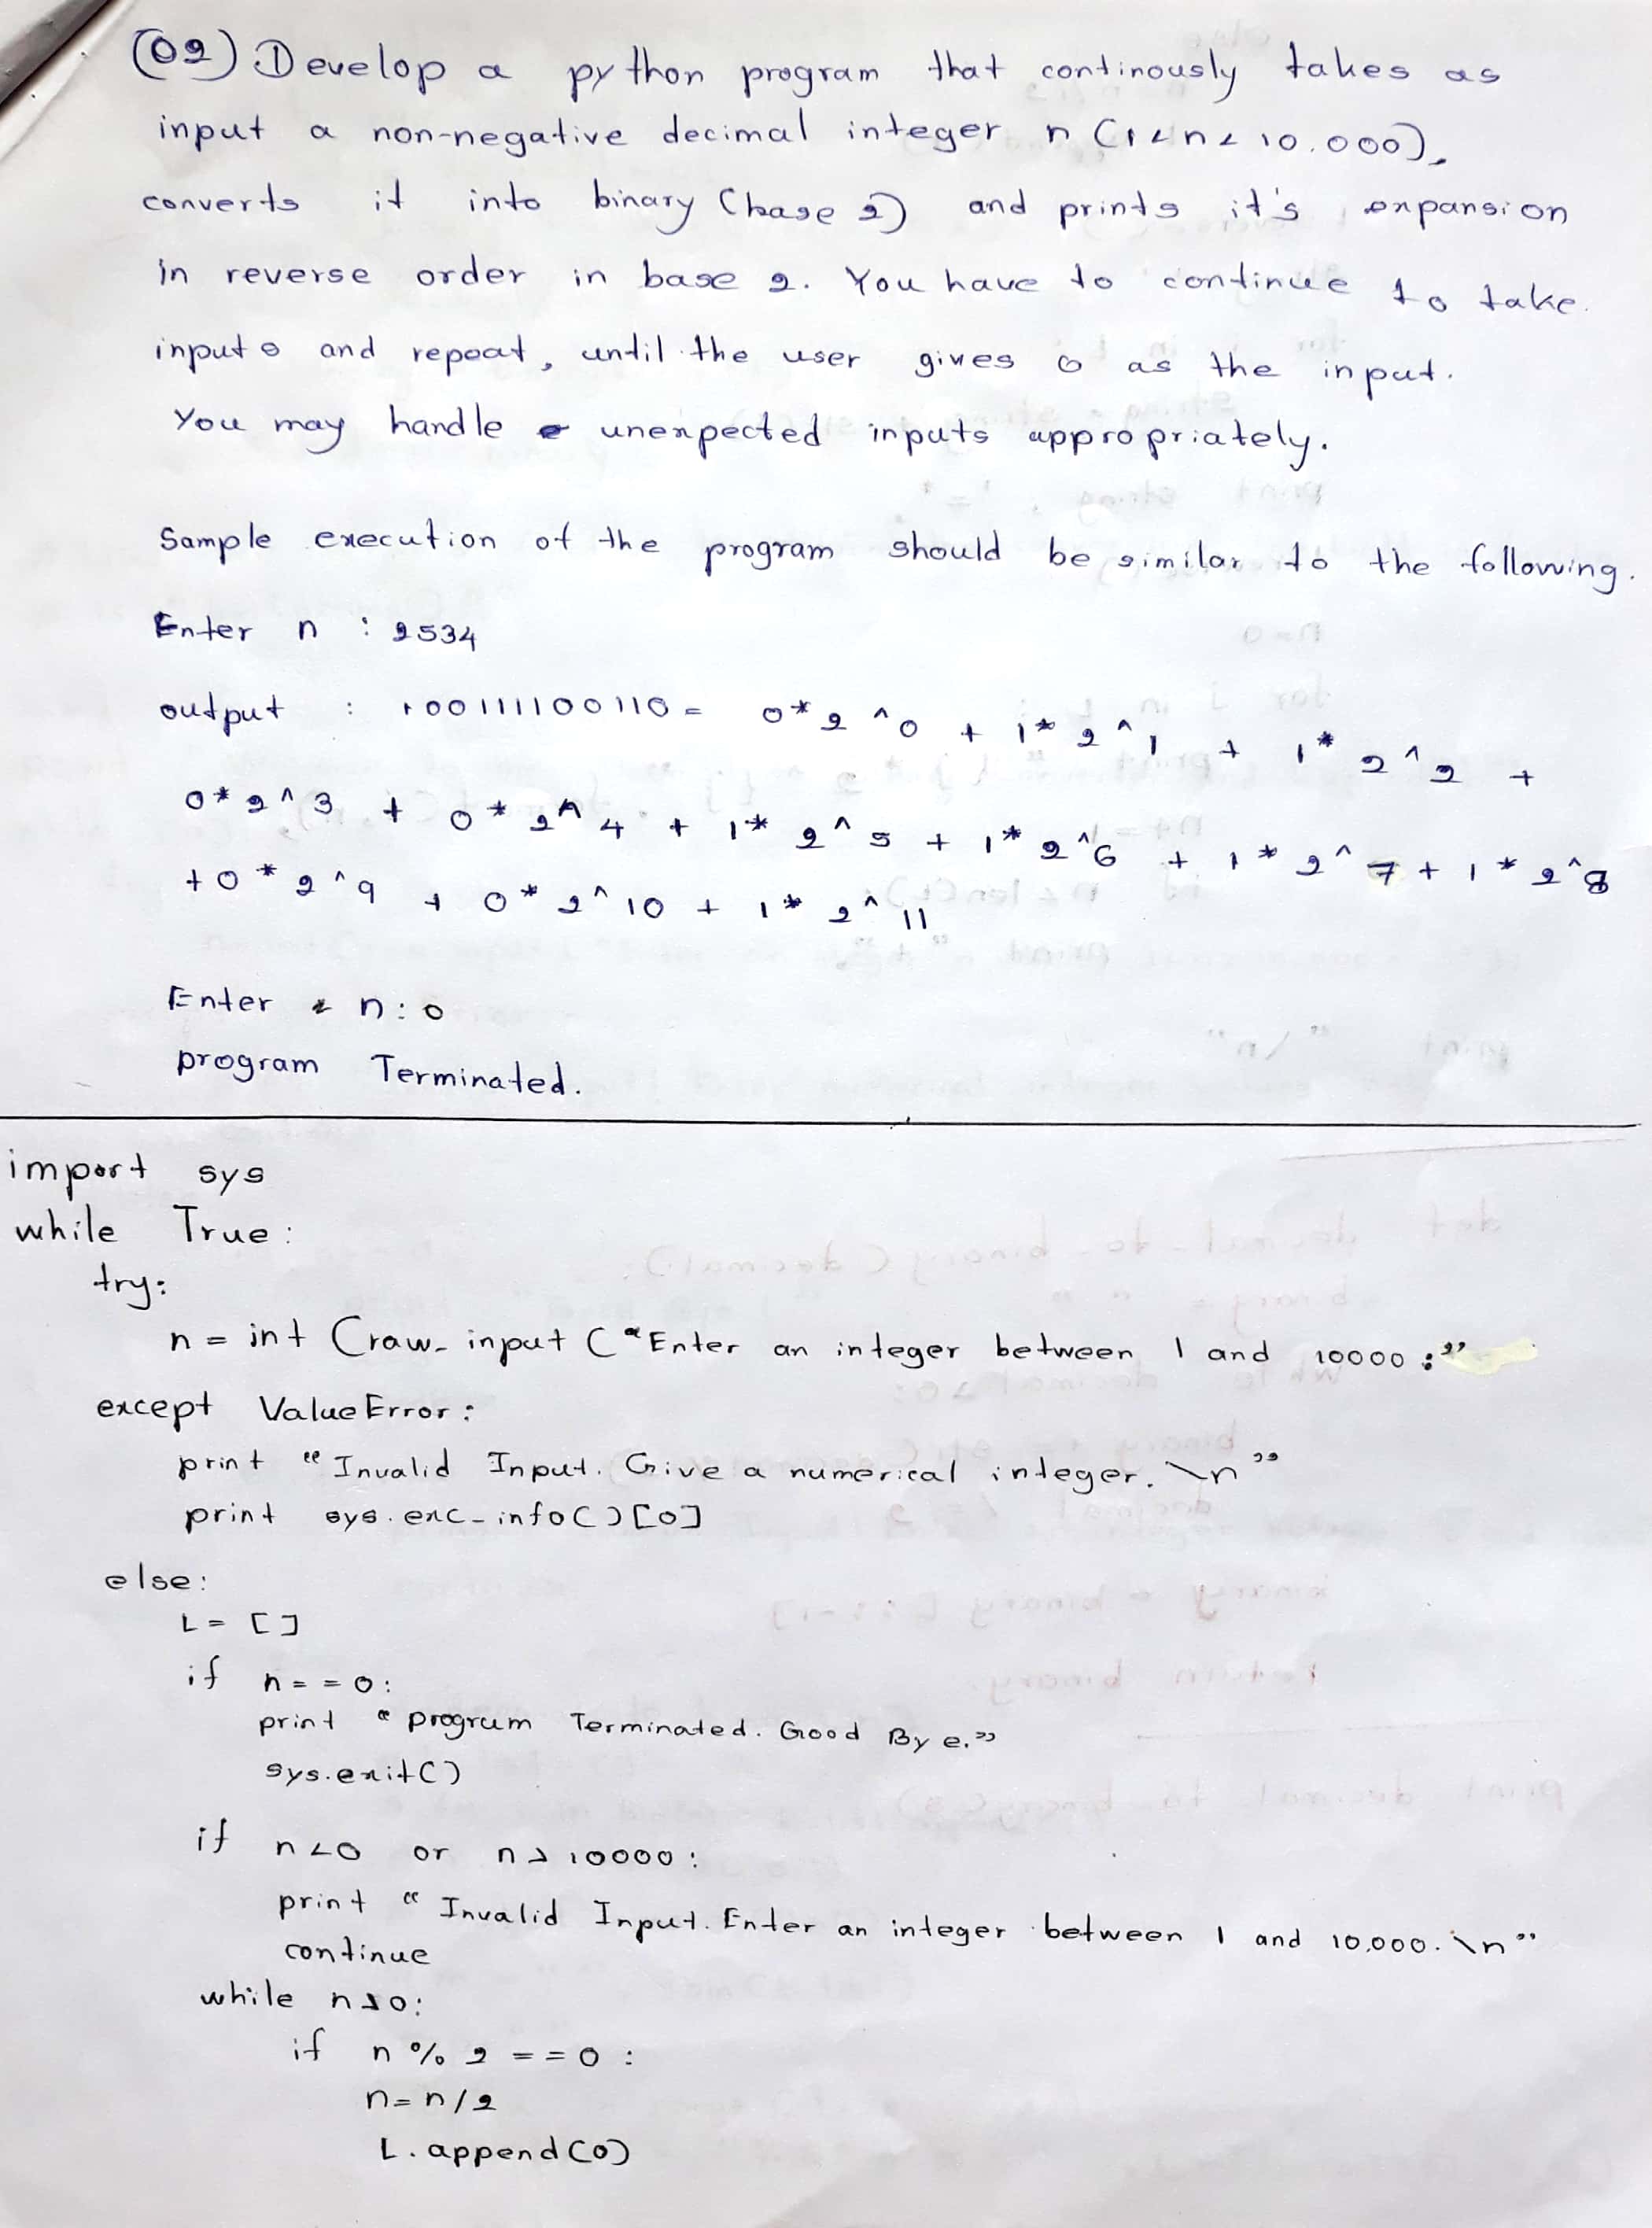 (02) Develop a python program that continously takes as
input a non-negative decimal integer n (1<n<10.000),
converts it into binary (base 2) and prints it's expansion
in reverse order in base 2. You have to continue to take
inputs and repeat, until the user gives 0 as the input.
You may handle unexpected inputs appropriately.
Sample execution of the program should be similar to the following.
Enter n : 2534
output : 100111100110 = 0*2^0 + 1*2^1 + 1*2^2 +
0*2^3 + 0*2^4 + 1*2^5 + 1*2^6 + 1*2^7 + 1*2^8
+0*2^9 + 0*2^10 + 1*2^11
Enter n:0
program Terminated.
import sys
while True:
try:
n = int (raw_input ("Enter an integer between 1 and 10000:"
except ValueError:
print "Invalid Input. Give a numerical integer. \n"
print sys.exc_info()[0]
else:
L = []
if n==0:
print "program Terminated. Good Bye."
sys.exit()
if n<0 or n>10000:
print "Invalid Input. Enter an integer between 1 and 10,000. \n"
continue
while n>0:
if n%2 ==0 :
n=n/2
L.append(0)